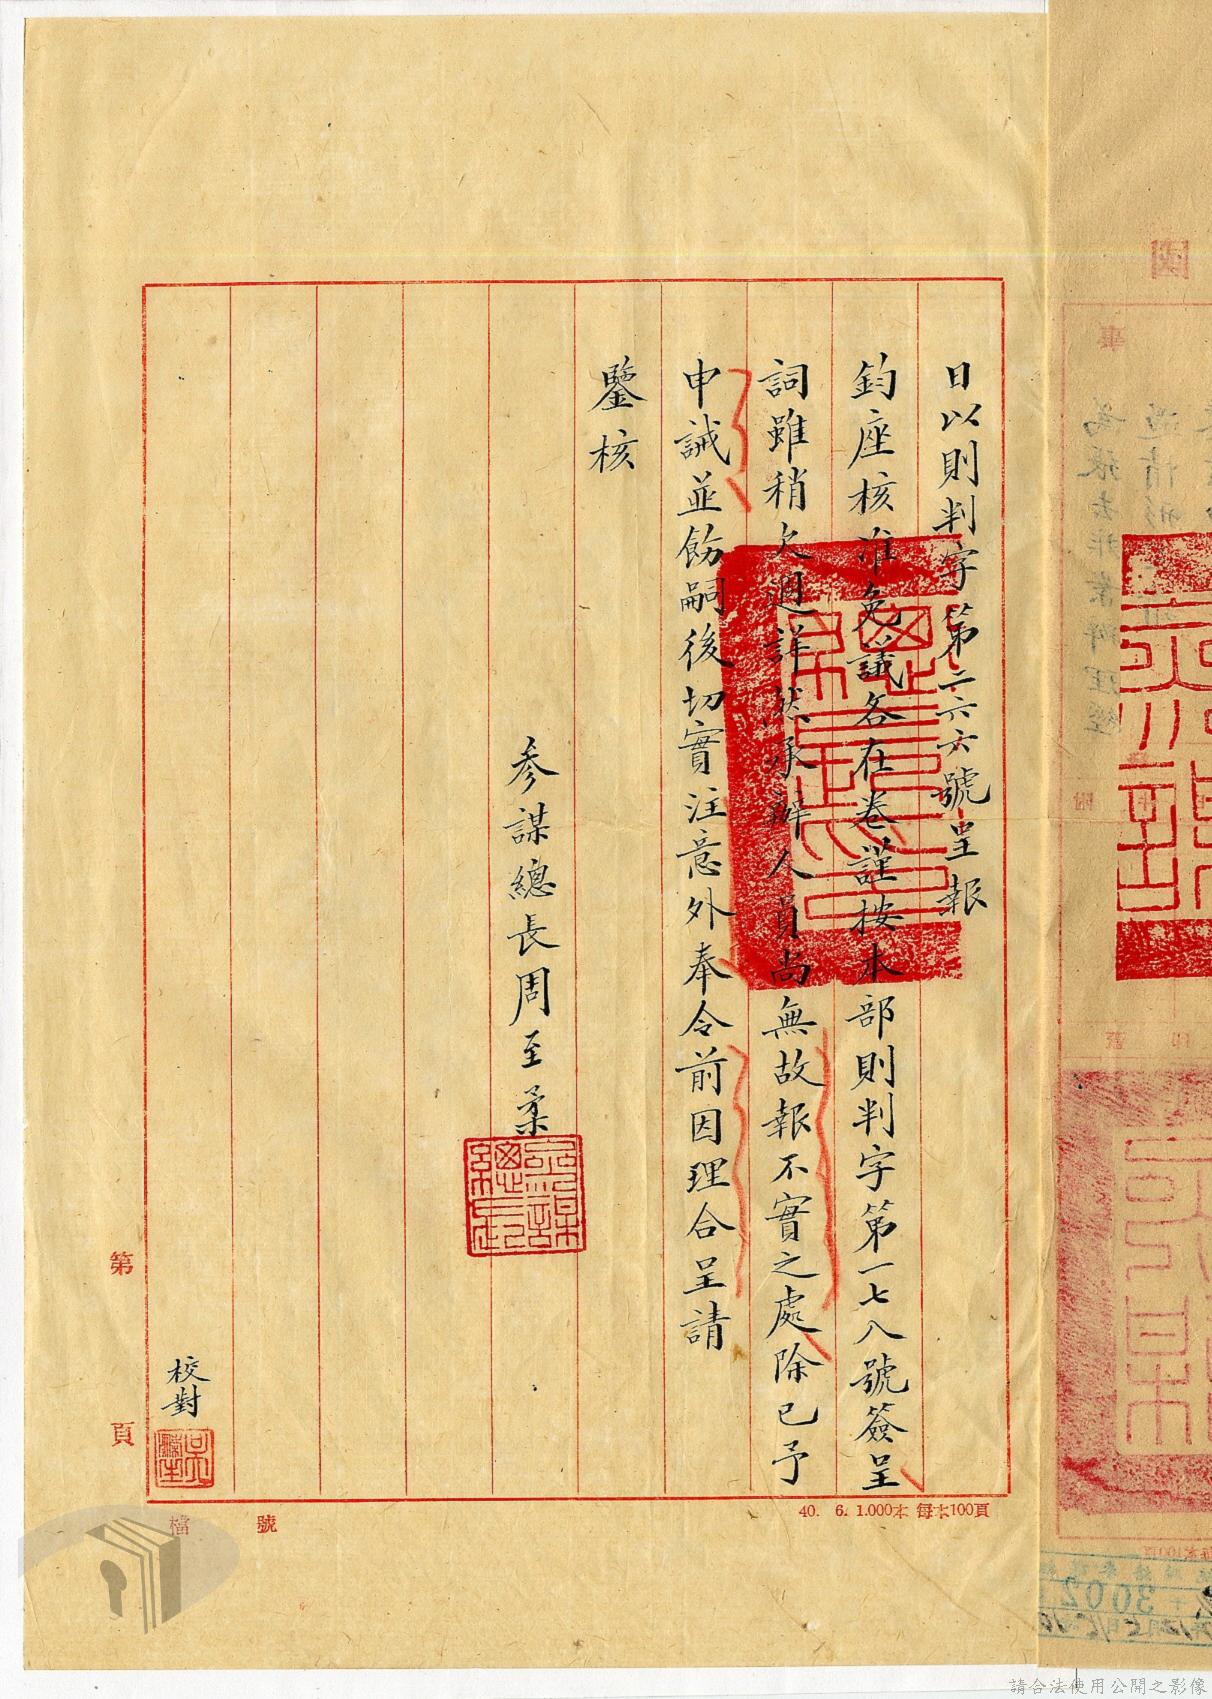 日以則判字第二六六號呈報
鈞座核准免議各在卷謹按本部則判字第一七八號簽呈
詞雖稍欠週詳然承辦人員尚無故報不實之處除已予
申誡並飭嗣後切實注意外奉令前因理合呈請
鑒核
參謀總長周至柔
參謀總長
校對
第 頁
檔 號
40. 6. 1.000本 每本100頁
請合法使用公開之影像